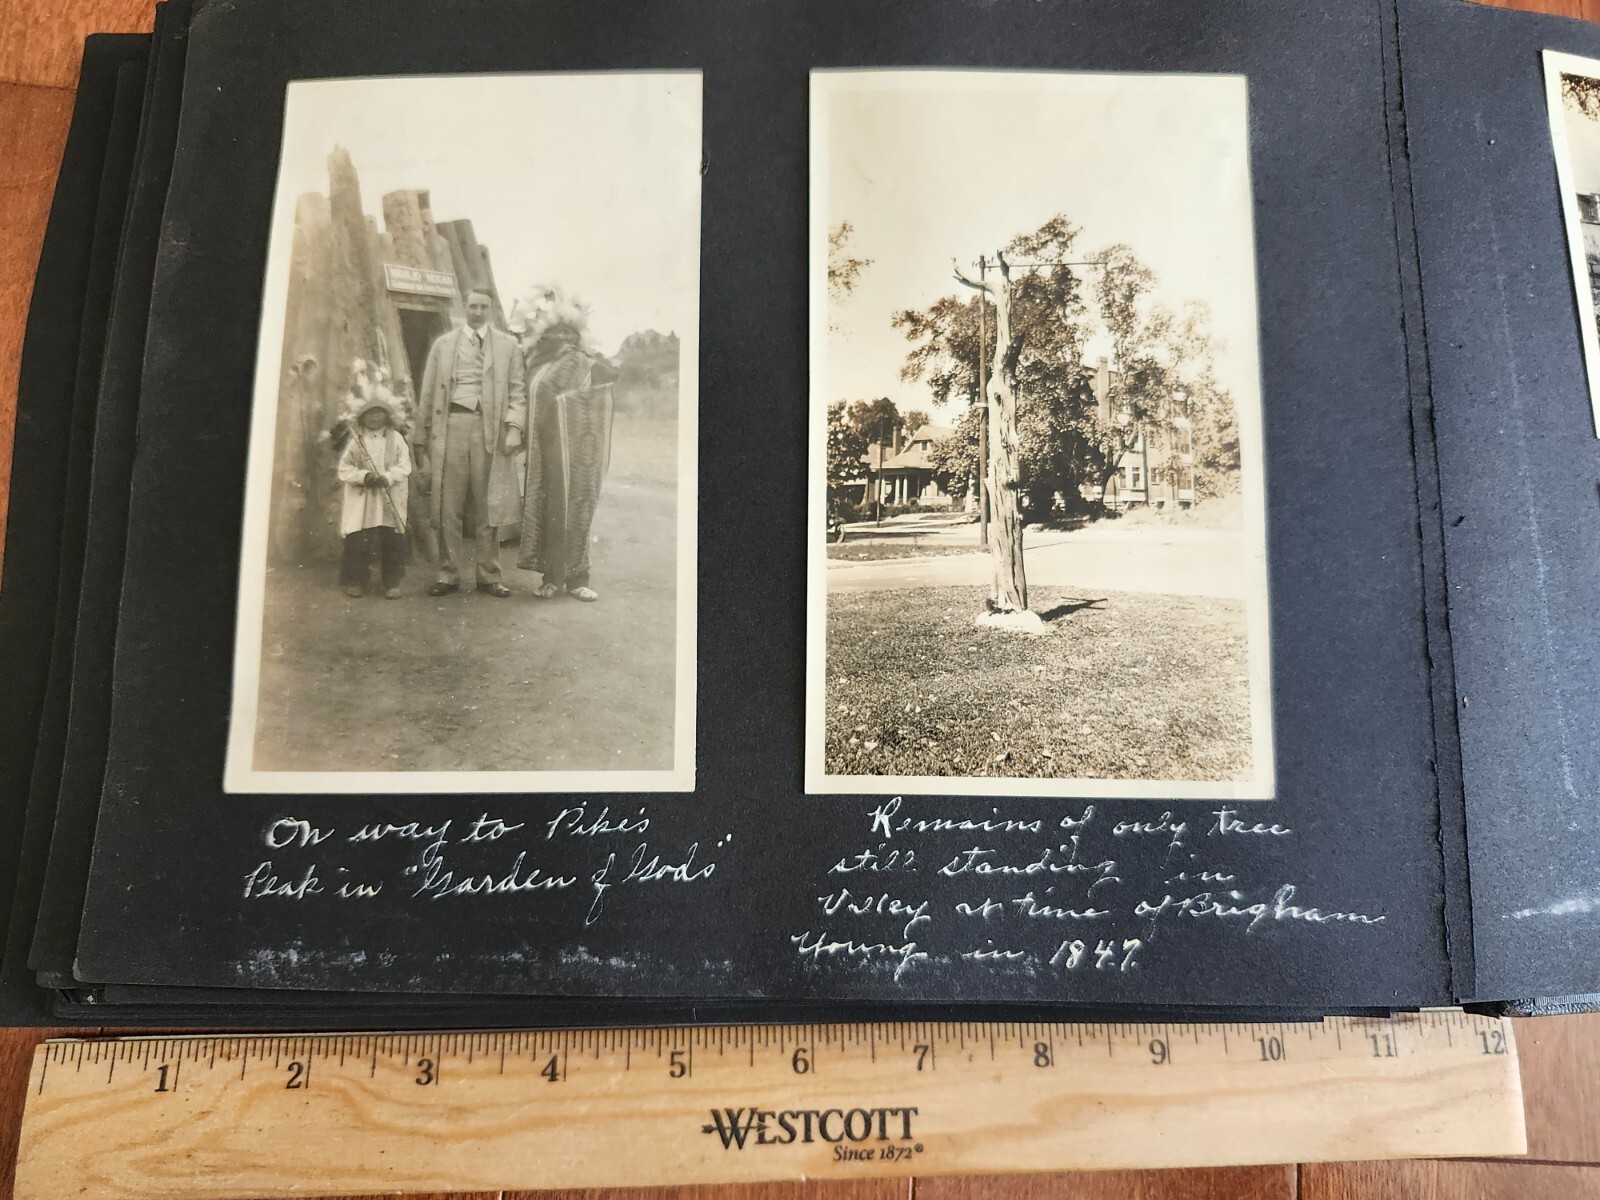 NAVAJO HOGAN
On way to Pike's
Peak in "Garden of Gods"
Remains of only tree
still standing in
Valley at time of Brigham
Young in 1847.
1 2 3 4 5 6 7 8 9 10 11 12
WESTCOTT
Since 1872®